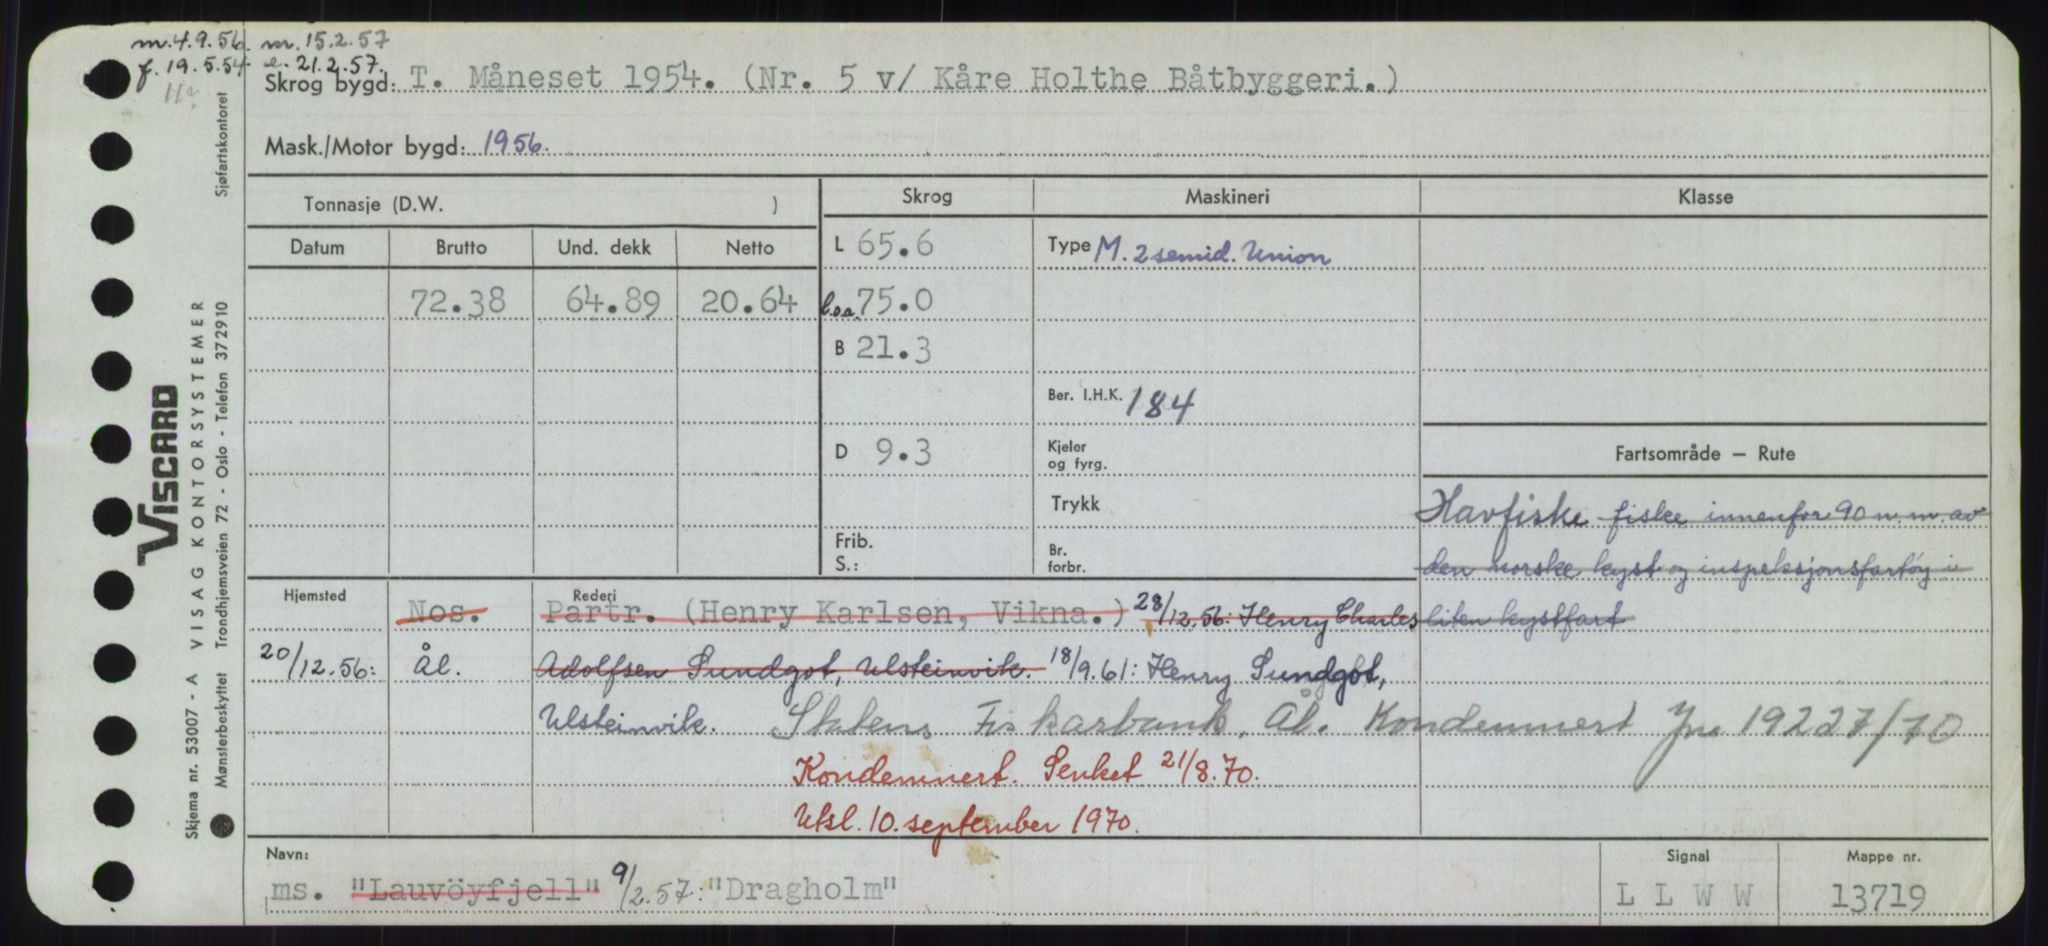 m. 4.9.56. m. 15.2.57
f. 19.5.54 e. 21.2.57.
Skrog bygd: T. Måneset 1954. (Nr. 5 v/ Kåre Holthe Båtbyggeri.)
Mask./Motor bygd: 1956.
Tonnasje (D.W. ) Skrog Maskineri Klasse
Datum Brutto Und. dekk Netto L 65.6 Type M. 2 semid. Union
72.38 64.89 20.64 l.o.a. 75.0
B 21.3
Ber. I.H.K. 184
D 9.3 Kjeler og fyrg. Fartsområde — Rute
Trykk Havfiske fiske innenfor 90 n.m. av
Frib. S.: Br. forbr. den norske kyst og inspeksjonsfartøy i
Hjemsted Nos. Rederi Partr. (Henry Karlsen, Vikna.) 28/12.56: Henry Charles liten kystfart
20/12.56: Ål. Adolfsen Sundgot, Ulsteinvik. 18/9.61: Henry Sundgot,
Ulsteinvik. Statens Fiskarbank, Ål. Kondemnert Jnr 19227/70
Kondemnert. Senket 21/8.70.
Utsl. 10. september 1970.
Navn: Signal Mappe nr.
ms. "Lauvöyfjell" 9/2.57: "Dragholm" L L W W 13719
Sjøfartskontoret
VISCARD
VISAG KONTORSYSTEMER
Skjema nr. 53007 - A
Mønsterbeskyttet Trondhjemsveien 72 - Oslo - Telefon 372910